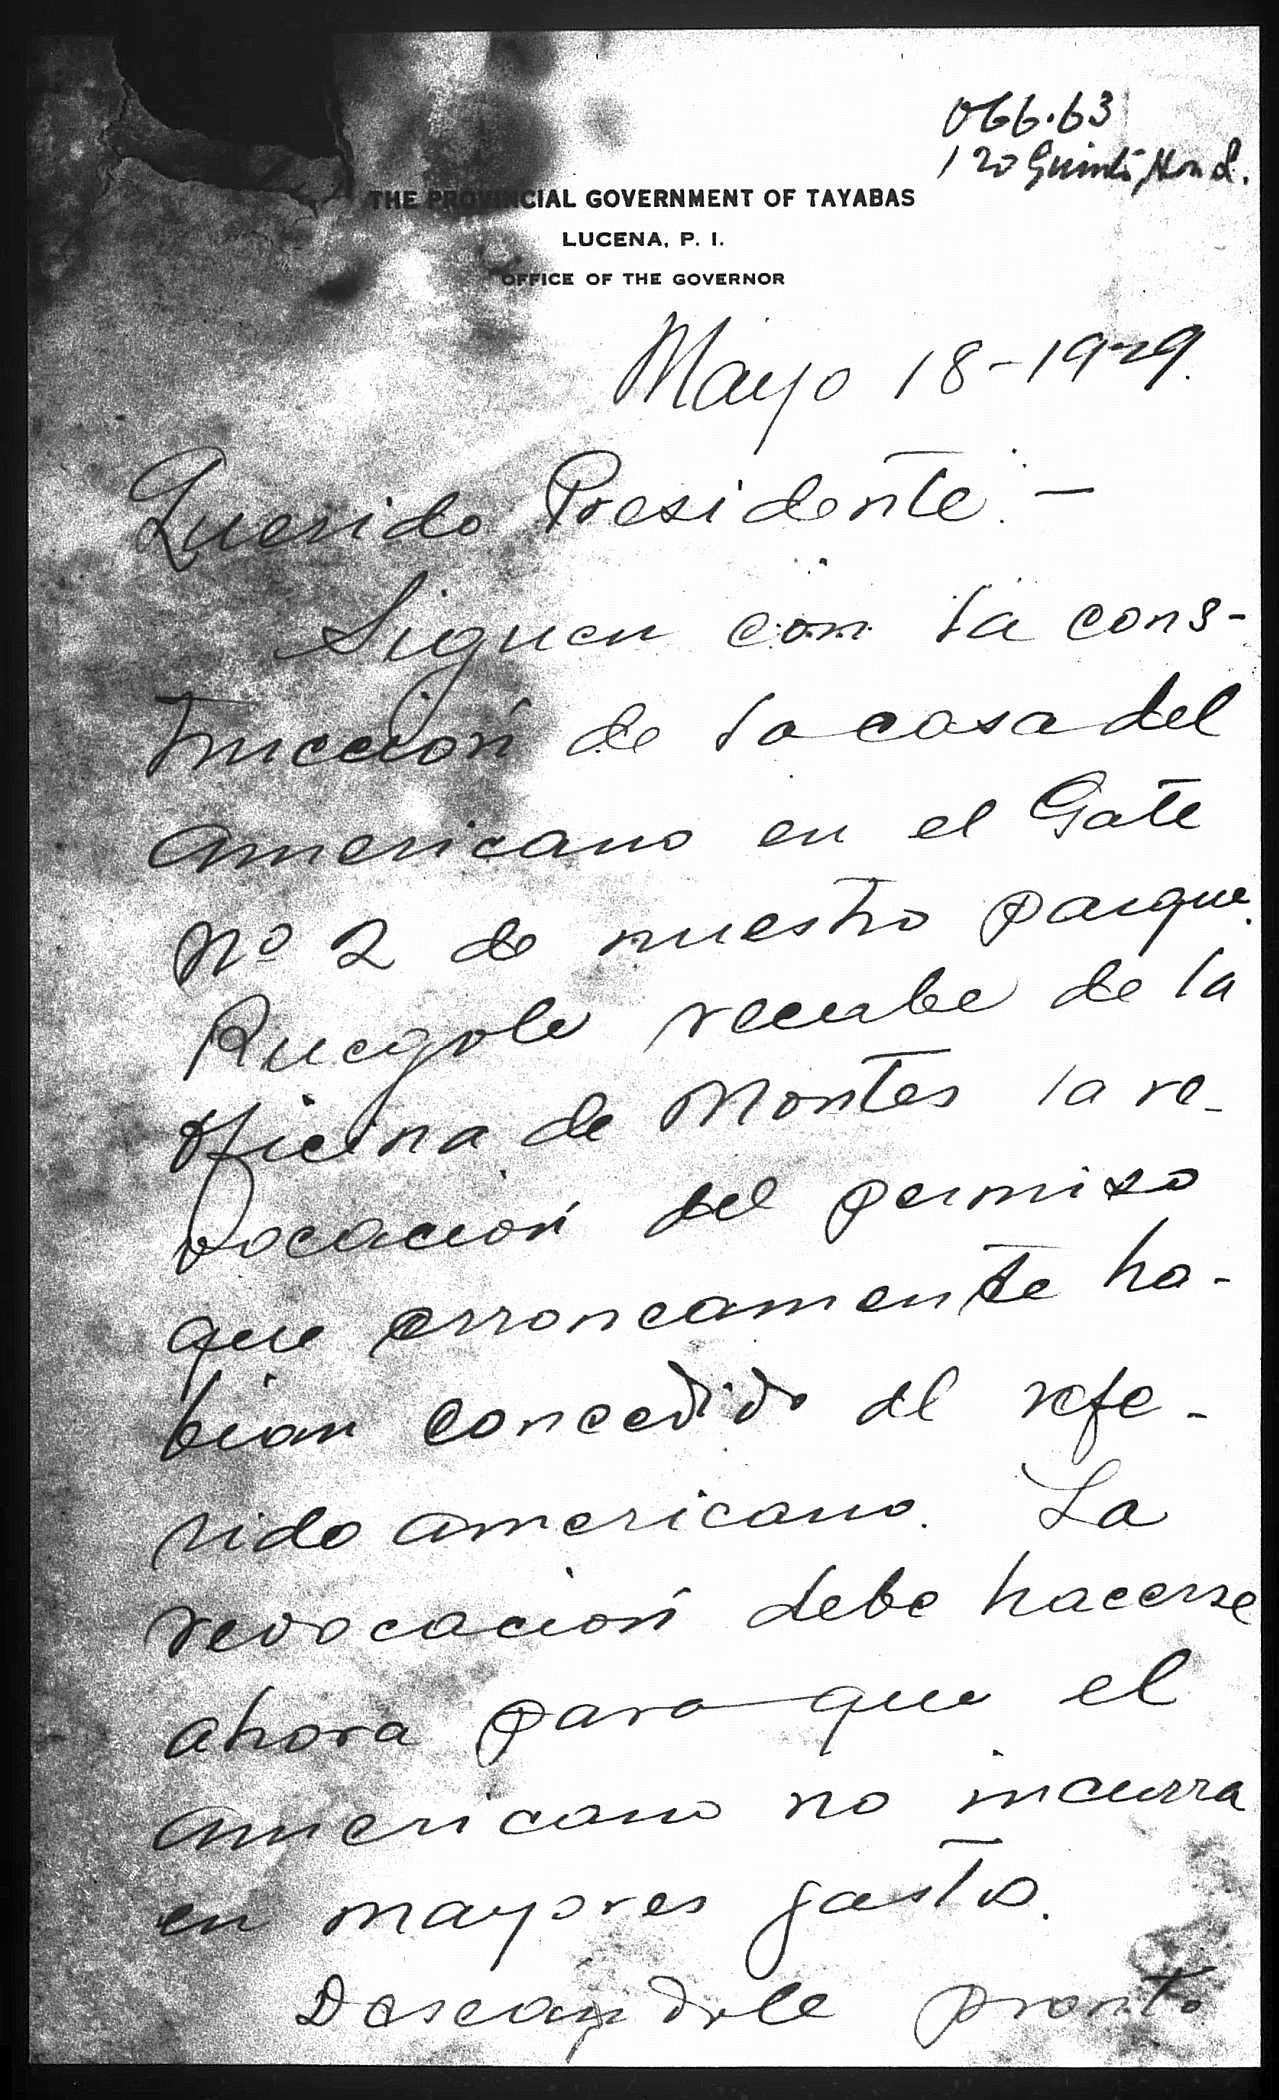 066.63
120
THE PROVINCIAL GOVERNMENT OF TAYABAS
LUCENA, P. I.
OFFICE OF THE GOVERNOR
Mayo 18-1929.
Querido Presidente: —
Siguen con la cons-
trucción de la casa del
americano en el Gate
Nº 2 de nuestro parque.
Ruegole recabe de la
oficina de Montes la re-
vocación del permiso
que erroneamente ha-
bian concedido al refe-
rido americano. La
revocación debe hacerse
ahora para que el
americano no incurra
en mayores gastos.
Deseandole pronto